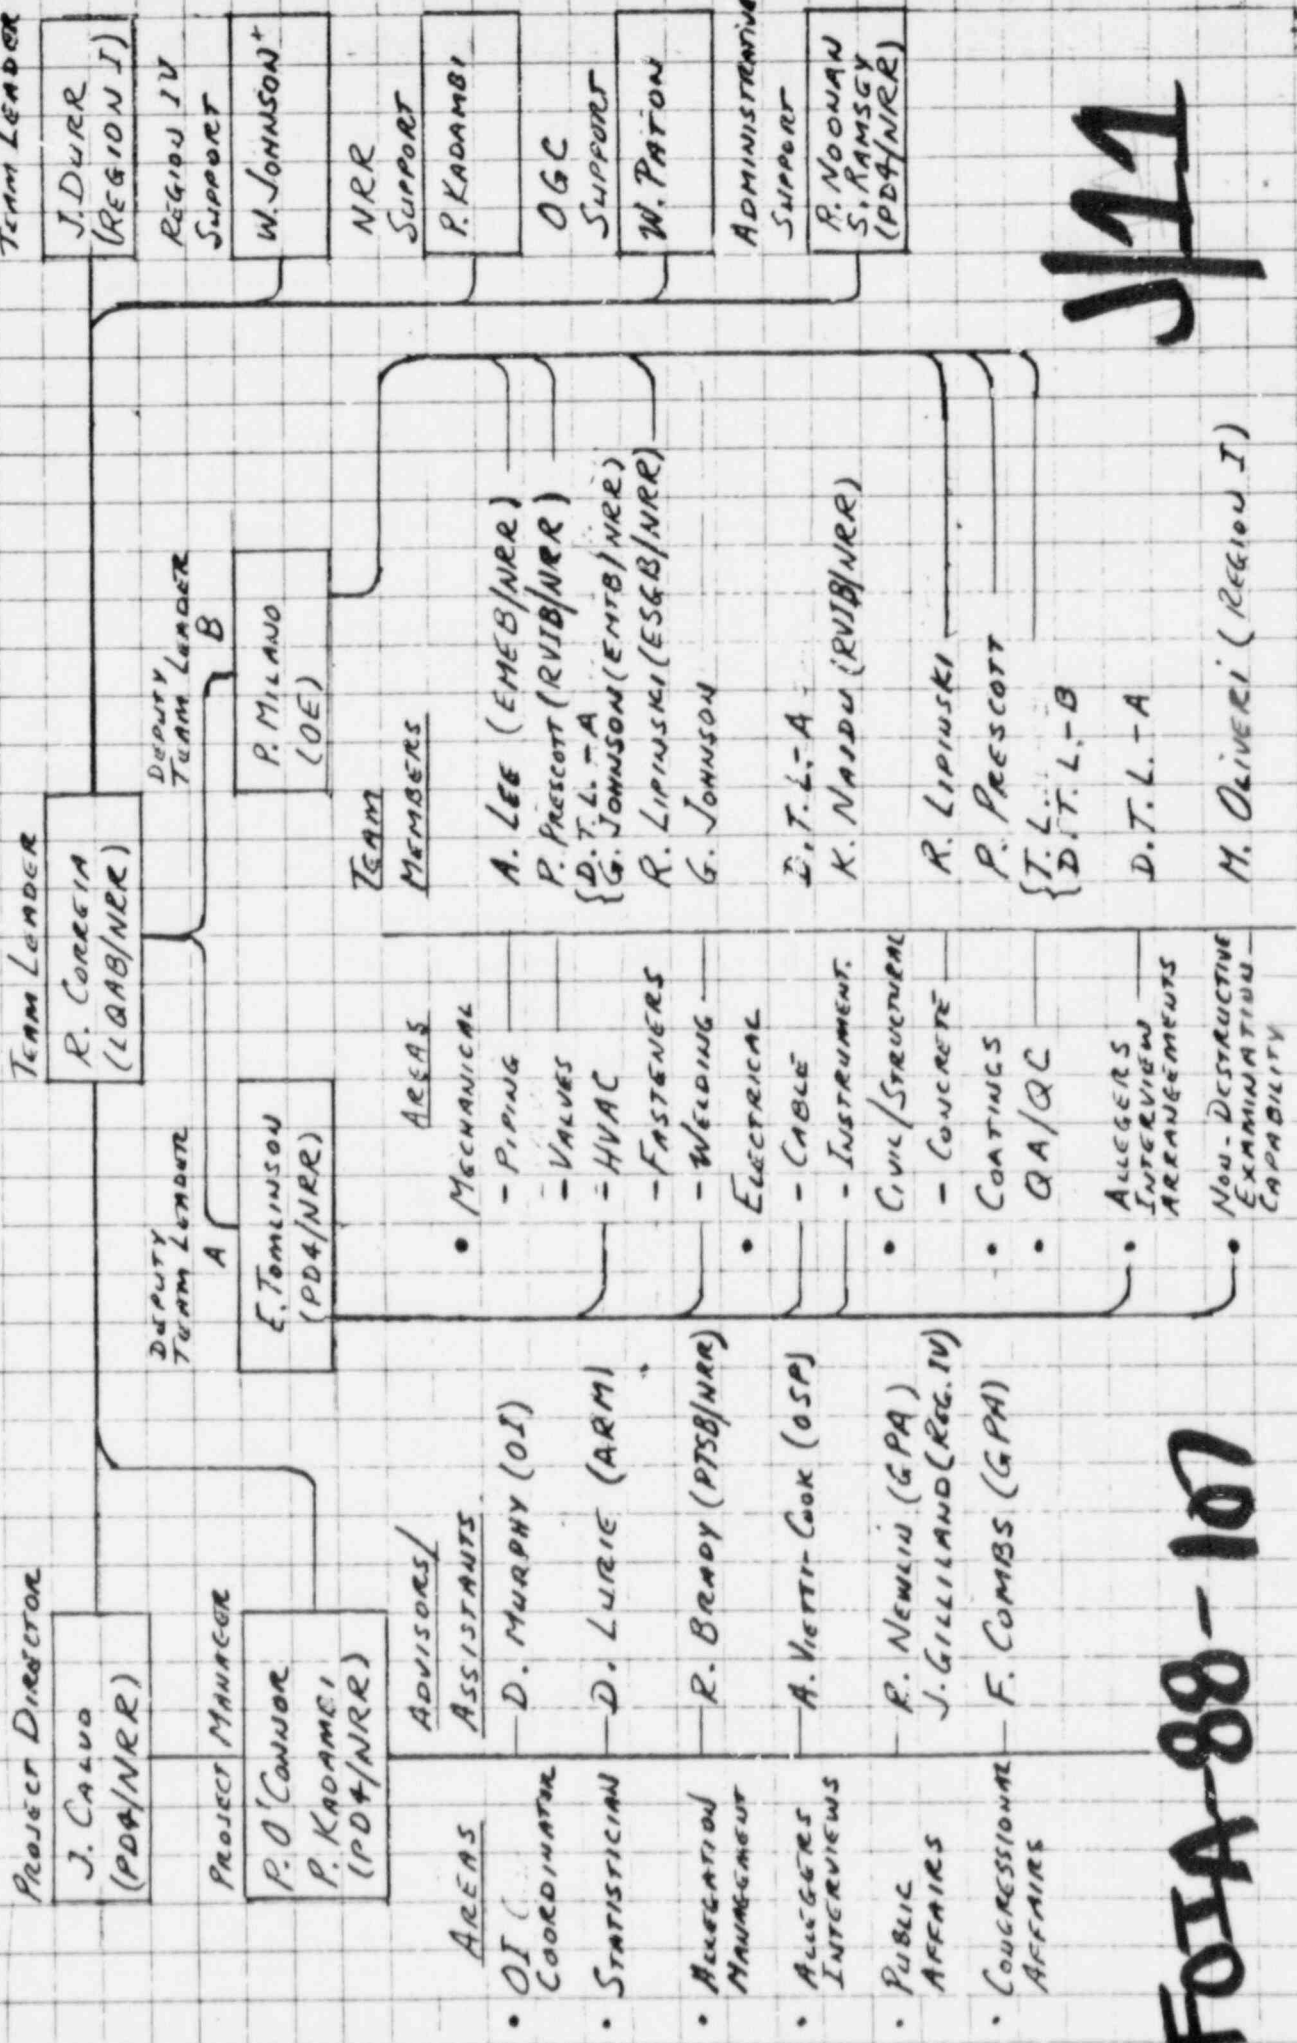 PROJECT DIRECTOR
J. CALVO
(PD4/NRR)
PROJECT MANAGER
P. O'CONNOR
P. KADAMBI
(PD4/NRR)
AREAS
ADVISORS/
ASSISTANTS
• OI
COORDINATOR
D. MURPHY (OI)
• STATISTICIAN
D. LURIE (ARM)
• ALLEGATION
MANAGEMENT
R. BRADY (PTSB/NRR)
• ALLEGERS
INTERVIEWS
A. VIETTI-COOK (OSP)
• PUBLIC
AFFAIRS
R. NEWLIN (GPA)
J. GILLILAND (REG. IV)
• CONGRESSIONAL
AFFAIRS
F. COMBS (GPA)
TEAM LEADER
R. CORREIA
(LQAB/NRR)
DEPUTY
TEAM LEADER
A
E. TOMLINSON
(PD4/NRR)
DEPUTY
TEAM LEADER
B
P. MILANO
(OE)
AREAS
TEAM
MEMBERS
• MECHANICAL
- PIPING
A. LEE (EMEB/NRR)
- VALVES
P. PRESCOTT (RVIB/NRR)
- HVAC
{D.T.L.-A
G. JOHNSON (EMTB/NRR)
- FASTENERS
R. LIPINSKI (ESGB/NRR)
- WELDING
G. JOHNSON
• ELECTRICAL
- CABLE
D.T.L.-A
- INSTRUMENT.
K. NAIDU (RVIB/NRR)
• CIVIL/STRUCTURAL
- CONCRETE
R. LIPINSKI
• COATINGS
P. PRESCOTT
• QA/QC
{T.L.
D.T.L.-B
• ALLEGERS
INTERVIEW
ARRANGEMENTS
D.T.L.-A
• NON-DESTRUCTIVE
EXAMINATION
CAPABILITY
M. OLIVERI (REGION I)
TEAM LEADER
J. DURR
(REGION I)
REGION IV
SUPPORT
W. JOHNSON+
NRR
SUPPORT
P. KADAMBI
OGC
SUPPORT
W. PATON
ADMINISTRATIVE
SUPPORT
R. NOONAN
S. RAMSEY
(PD4/NRR)
FOIA-88-107
J/11